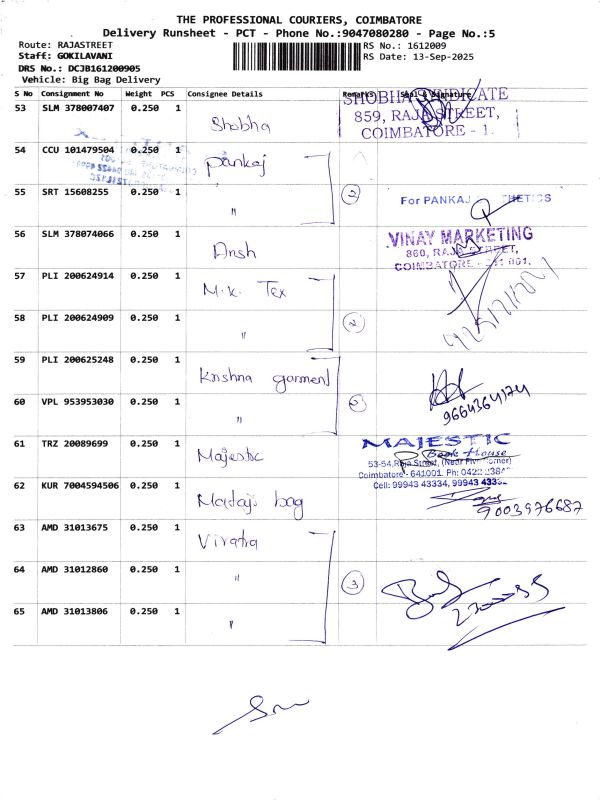 THE PROFESSIONAL COURIERS, COIMBATORE
Delivery Runsheet - PCT - Phone No.:9047080280 - Page No.:5
Route: RAJASTREET
RS No.: 1612009
Staff: GOKILAVANI
RS Date: 13-Sep-2025
DRS No.: DCJB161200905
Vehicle: Big Bag Delivery
S No Consignment No Weight PCS Consignee Details Remarks Seal & Signature
53 SLM 378007407 0.250 1 Shobha
SHOBHA SYNDICATE
859, RAJA STREET,
COIMBATORE - 1.
54 CCU 101479504 0.250 1 Pankaj
55 SRT 15608255 0.250 1 " 2
For PANKAJ
56 SLM 378074066 0.250 1 Ansh
VINAY MARKETING
860, RAJA STREET,
COIMBATORE - 641 001.
57 PLI 200624914 0.250 1 M.K. Tex
58 PLI 200624909 0.250 1 " 2
59 PLI 200625248 0.250 1 Krishna garment
60 VPL 953953030 0.250 1 " 2
9664364174
61 TRZ 20089699 0.250 1 Majestic
MAJESTIC
Book House
53-54, Raja Street, (Near Five Corner)
Coimbatore - 641001. Ph: 0422
Cell: 99943 43334, 99943
62 KUR 7004594506 0.250 1 Mataji bag
9003976687
63 AMD 31013675 0.250 1 Viratra
64 AMD 31012860 0.250 1 " 3
65 AMD 31013806 0.250 1 "